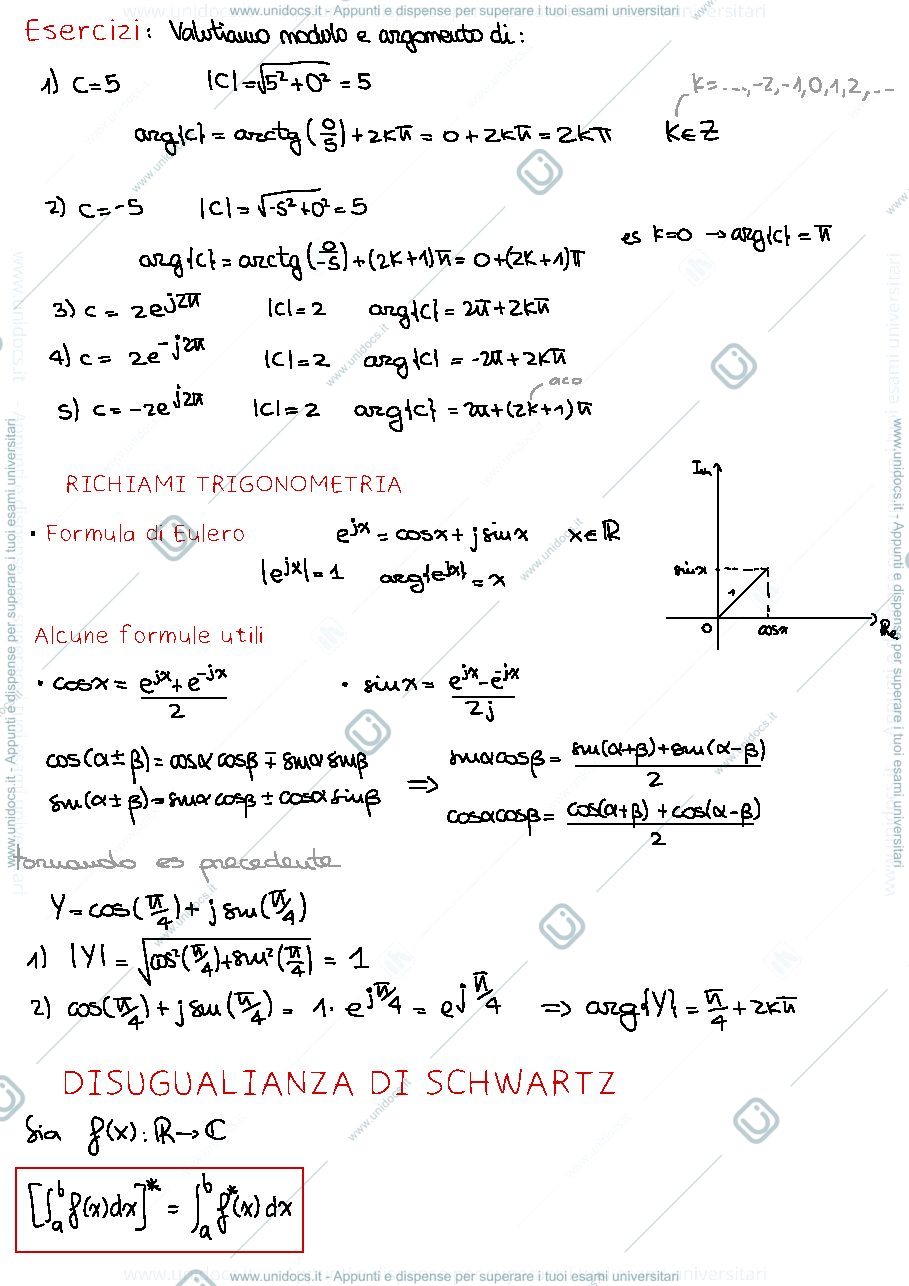 www.unidocs.it - Appunti e dispense per superare i tuoi esami universitari
Esercizi: Valutiamo modulo e argomento di:
1) C=5 |C|=√(5²+0²) = 5
K=...,-2,-1,0,1,2,...
arg{c} = arctg(0/5)+2Kπ = 0+2Kπ = 2Kπ K∈Z
2) C=-5 |C|= √(-5²+0²) = 5
es K=0 → arg{c} = π
arg{c} = arctg(0/-5)+(2K+1)π = 0+(2K+1)π
3) c = 2e^(j2π) |C|=2 arg{c} = 2π+2Kπ
4) c = 2e^(-j2π) |C|=2 arg{c} = -2π+2Kπ
5) c = -2e^(j2π) |C|=2 arg{c} = 2π+(2K+1)π
RICHIAMI TRIGONOMETRIA
• Formula di Eulero e^(jx) = cosx + j sinx x∈ℝ
|e^(jx)|=1 arg{e^(jx)} = x
Im
sinx
1
0
cosx
Re
Alcune formule utili
• cosx = (e^(jx)+e^(-jx))/2 • sinx = (e^(jx)-e^(-jx))/2j
cos(α±β)=cosα cosβ ∓ sinα sinβ
sin(α±β)=sinα cosβ ± cosα sinβ
⇒
sinαcosβ = (sin(α+β)+sin(α-β))/2
cosαcosβ = (cos(α+β)+cos(α-β))/2
tornando es precedente
Y=cos(π/4)+j sin(π/4)
1) |Y| = √(cos²(π/4)+sin²(π/4)) = 1
2) cos(π/4)+j sin(π/4) = 1·e^(jπ/4) = e^(jπ/4) ⇒ arg{Y} = π/4+2Kπ
DISUGUALIANZA DI SCHWARTZ
Sia f(x): ℝ→ℂ
[∫_a^b f(x)dx]* = ∫_a^b f*(x)dx
www.unidocs.it - Appunti e dispense per superare i tuoi esami universitari